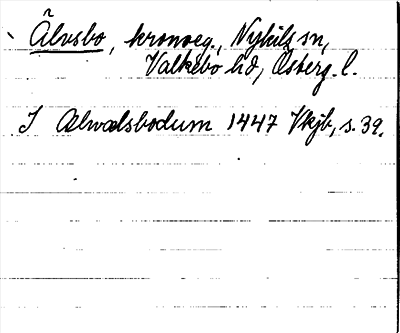 Älvsbo, kronoeg., Nykils sn,
Valkebo hd, Österg. l.
I Ælwalsbodum 1447 Vkjb, s. 39.